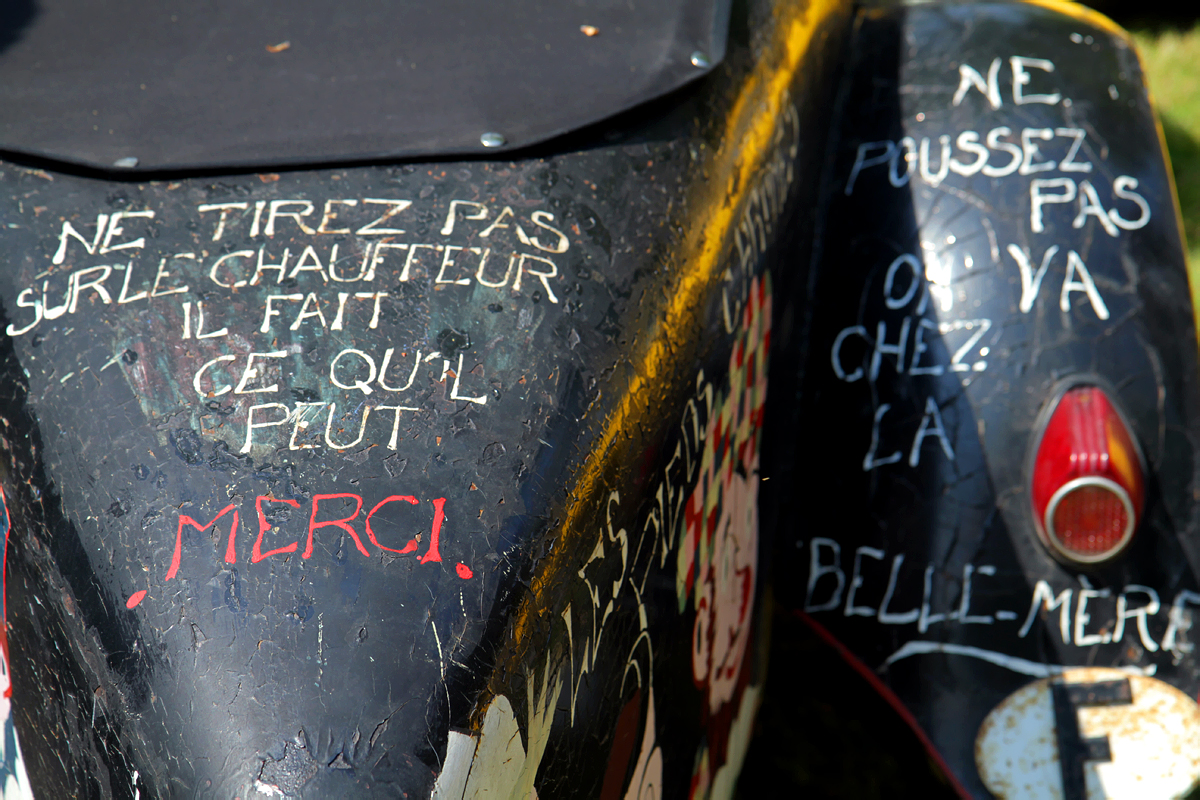 NE TIREZ PAS
SUR LE CHAUFFEUR
IL FAIT
CE QU'IL
PEUT
MERCI.
LES
NE
POUSSEZ
PAS
ON VA
CHEZ
LA
BELLE-MÈRE
F